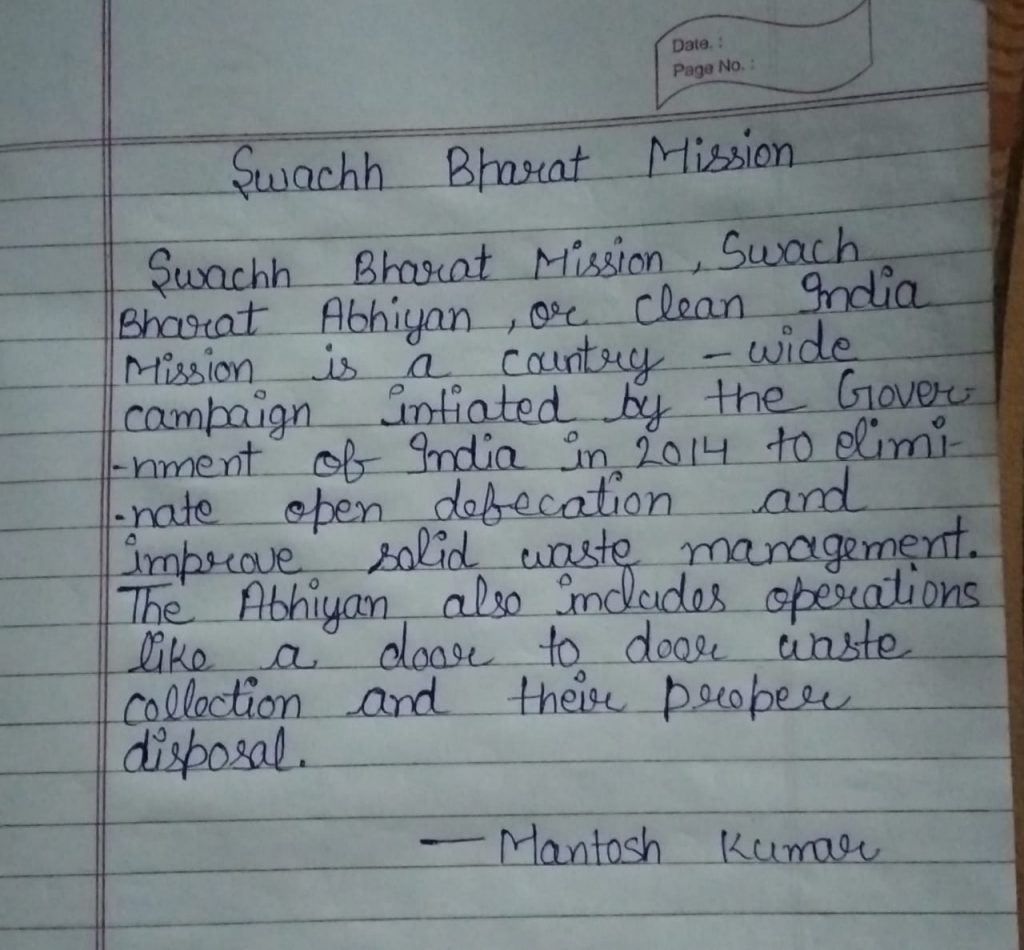 Date. :
Page No. :
Swachh Bharat Mission
Swachh Bharat Mission, Swach
Bharat Abhiyan, or clean India
Mission is a country - wide
campaign intiated by the Gover-
-nment of India in 2014 to elimi-
-nate open defecation and
improve solid waste management.
The Abhiyan also includes operations
like a door to door waste
collection and their proper
disposal.
— Mantosh Kumar